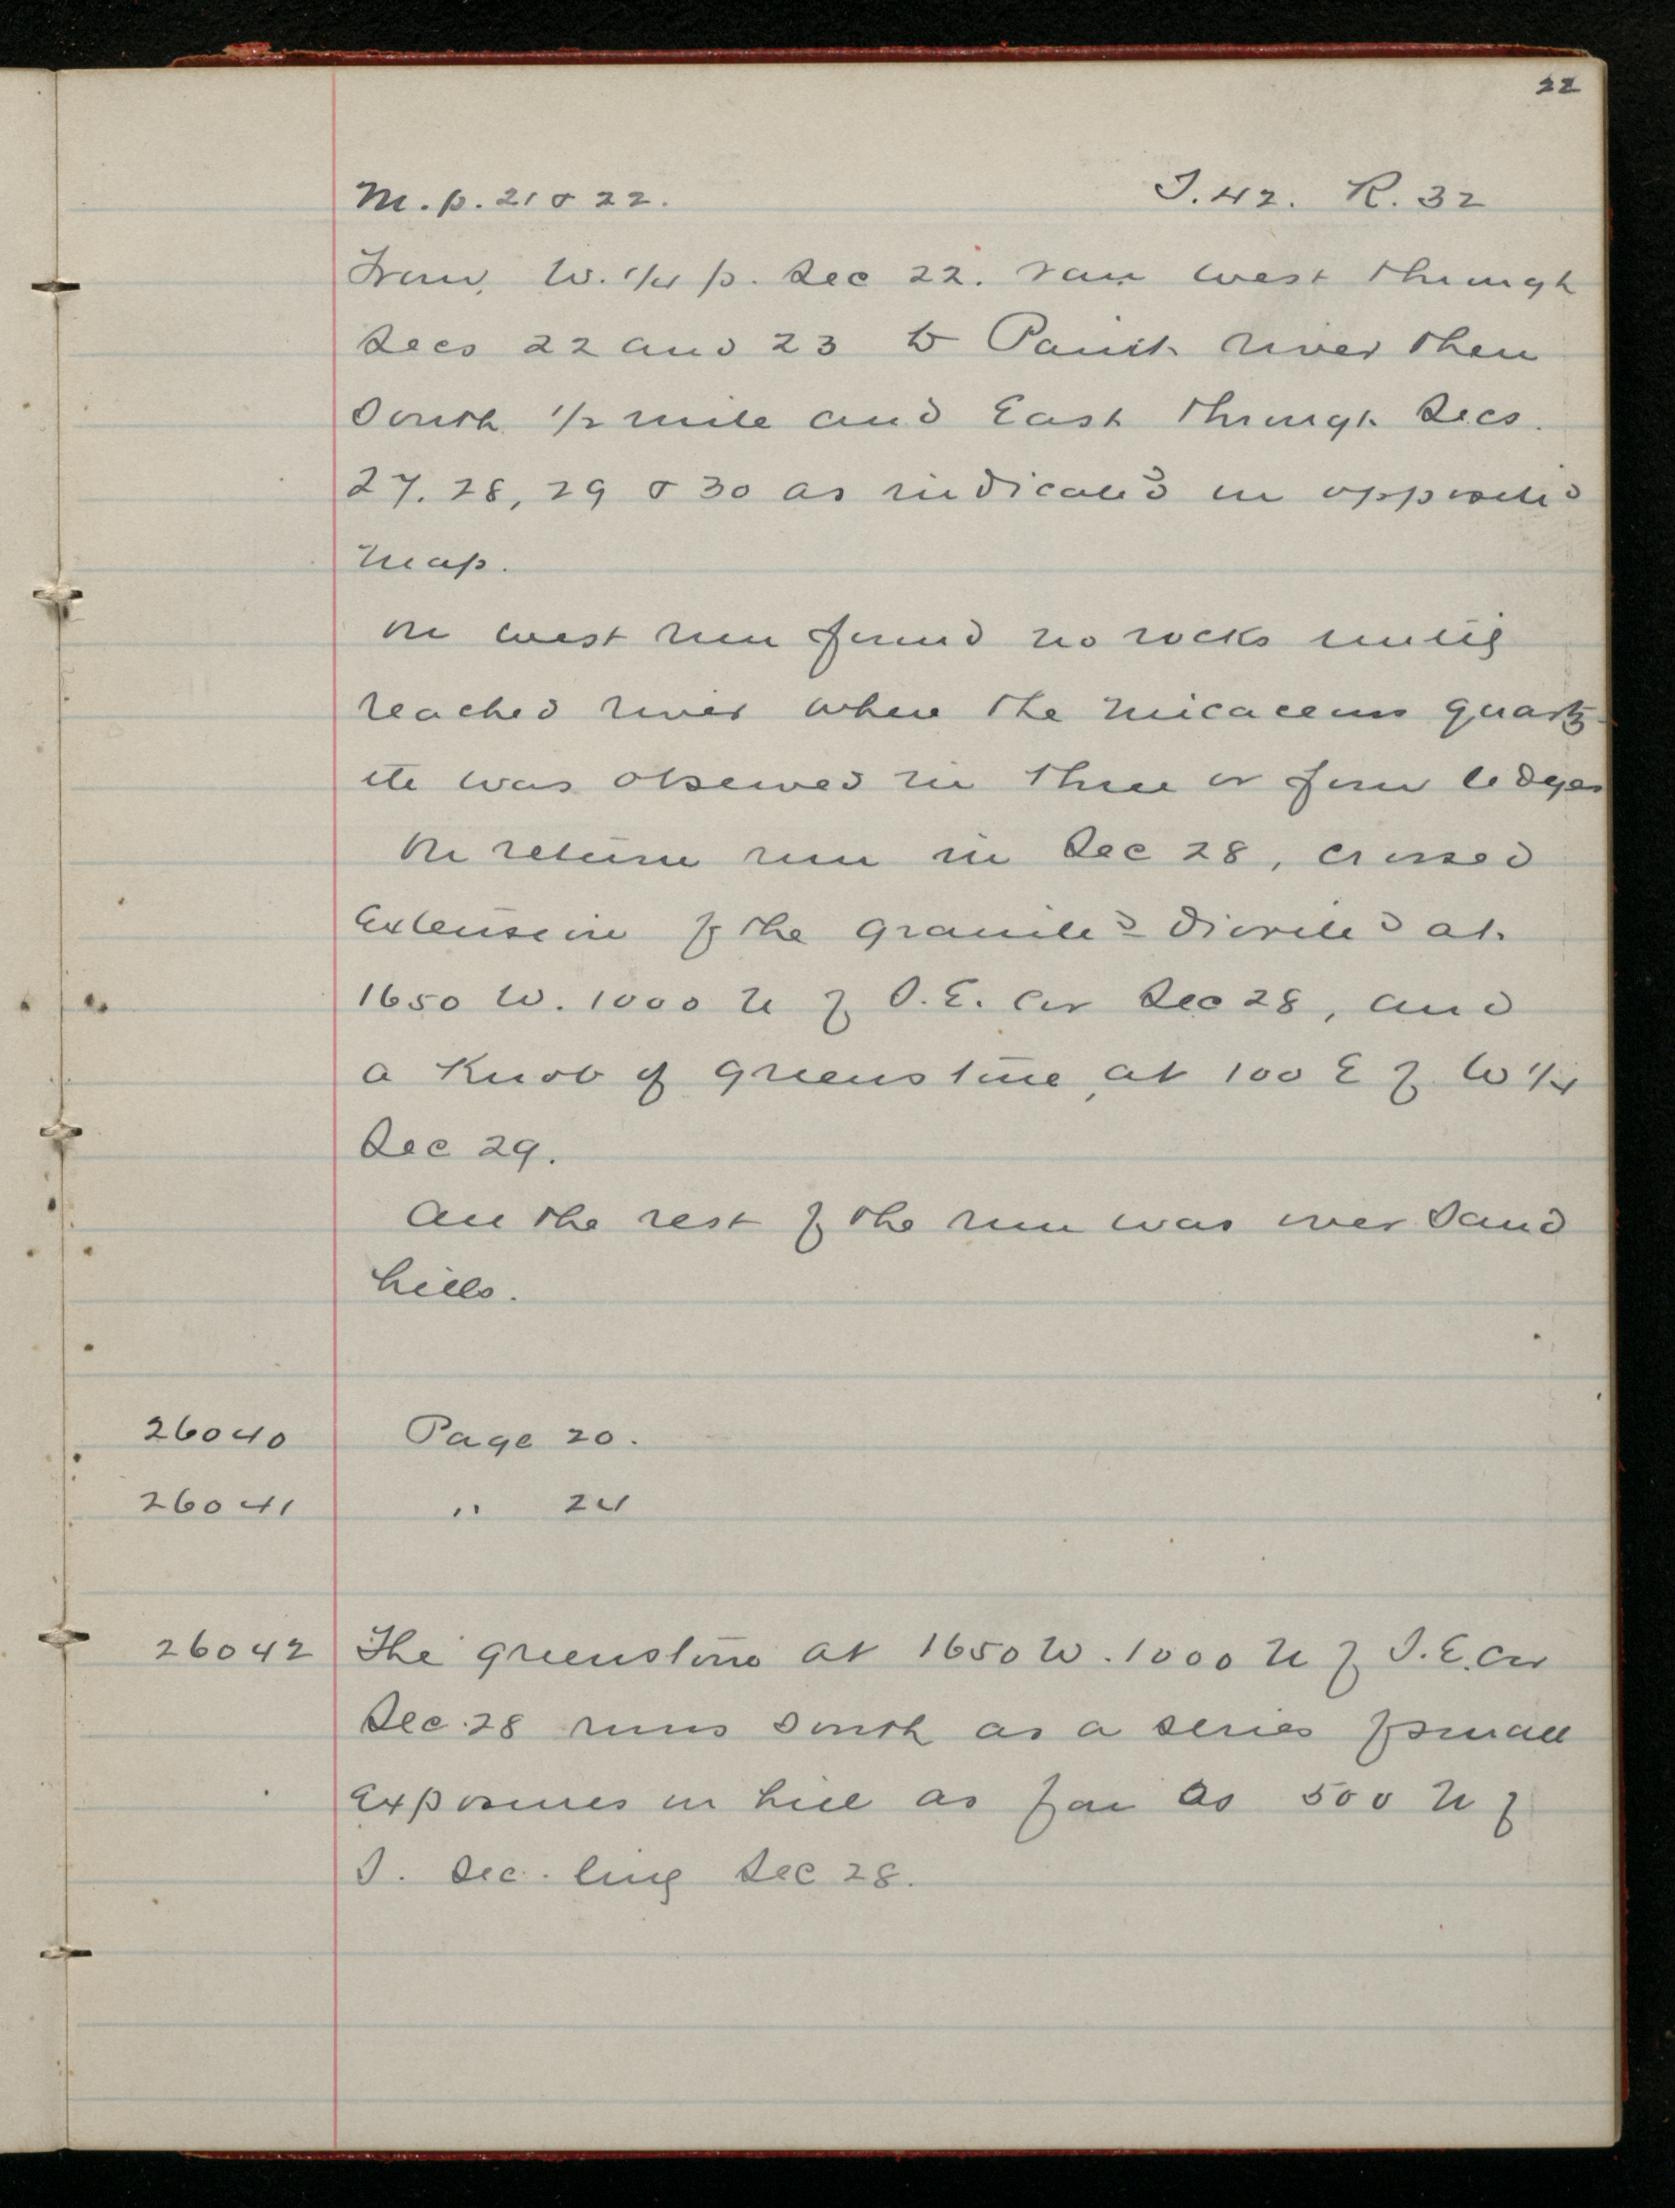 22
M.p. 21 & 22. T.42. R.32
From W. 1/4 p. Sec 22. ran west through
Secs 22 and 23 to Paint river then
South 1/2 mile and East through Secs.
27. 28, 29 & 30 as indicated on opposite
map.
On west run found no rocks until
reached river where the micaceous quartz-
ite was observed in three or four ledges
On return run in Sec 28, crossed
Extension of the granite = diorite at
1650 W. 1000 N of S.E. Cor Sec 28, and
a Knob of greenstone, at 100 E of W 1/4
Sec 29.
All the rest of the run was over Sand
hills.
26040 Page 20.
26041 " 24
26042 The greenstone at 1650 W. 1000 N of S.E. Cor
Sec. 28 runs South as a series of small
Exposures on hill as far as 500 N of
S. Sec. line Sec 28.